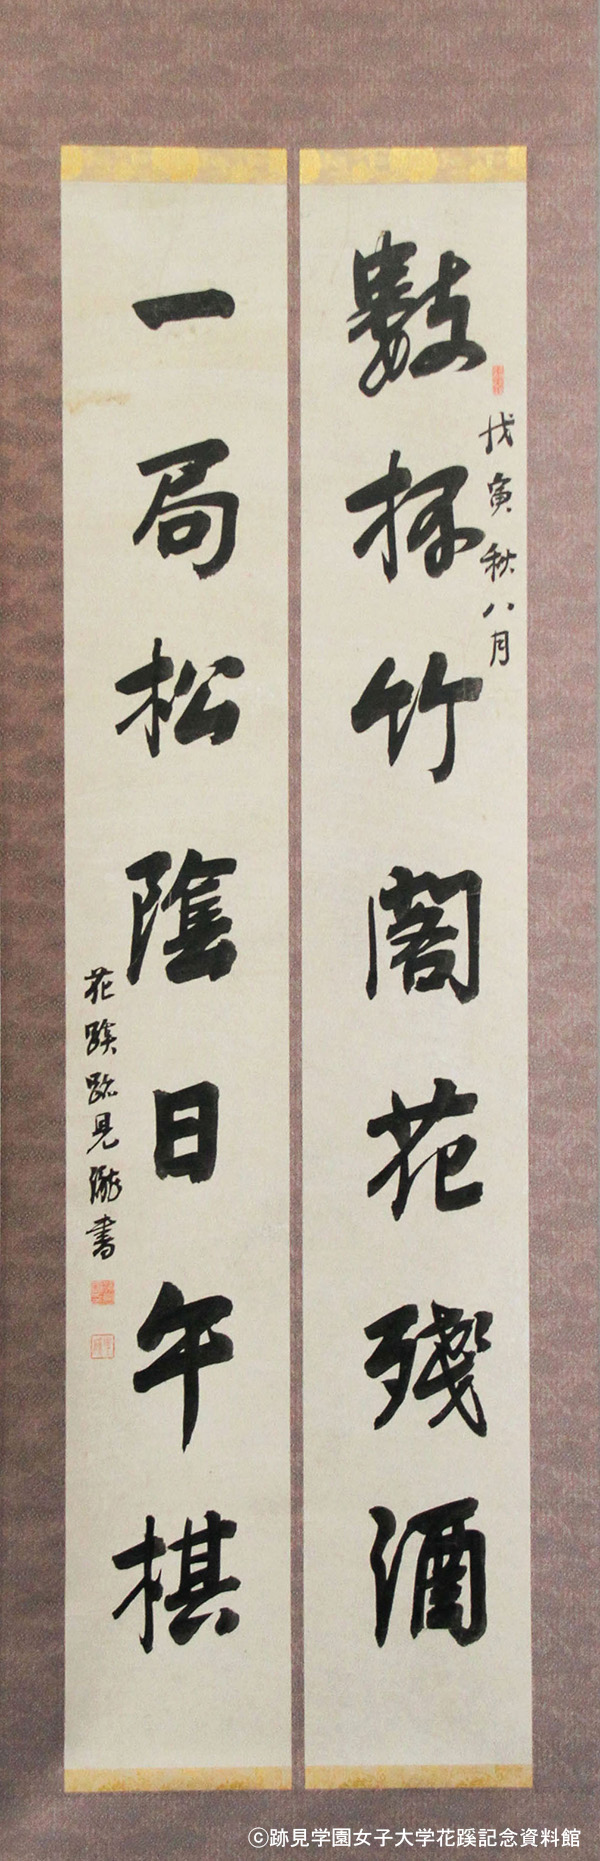 戊寅秋八月
數杯竹閣花殘酒
一局松陰日午棋
花蹊跡見瀧書
©跡見学園女子大学花蹊記念資料館